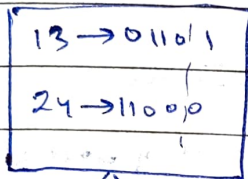 13 → 01101
24 → 11000